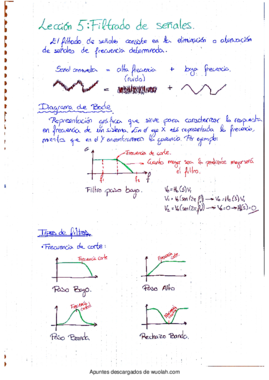 Lección 5: Filtrado de señales.
El filtrado de señales consiste en la eliminación o atenuación
de señales de frecuencia determinada.
Señal sumada = alta frecuencia + baja frecuencia.
(ruido)
Diagrama de Bode
Representación gráfica que sirve para caracterizar la respuesta
en frecuencia de un sistema. En el eje X está representado la frecuencia,
mientras que en el Y encontramos la ganancia. Por ejemplo:
Frecuencia de corte.
Cuanto mayor sea la pendiente mejor será
el filtro.
Filtro paso bajo.
Tipos de filtros
• Frecuencia de corte:
Frecuencia corte
Frecuencia corte
Paso Bajo.
Paso Alto
Paso Banda.
Rechazo Banda.
Apuntes descargados de wuolah.com